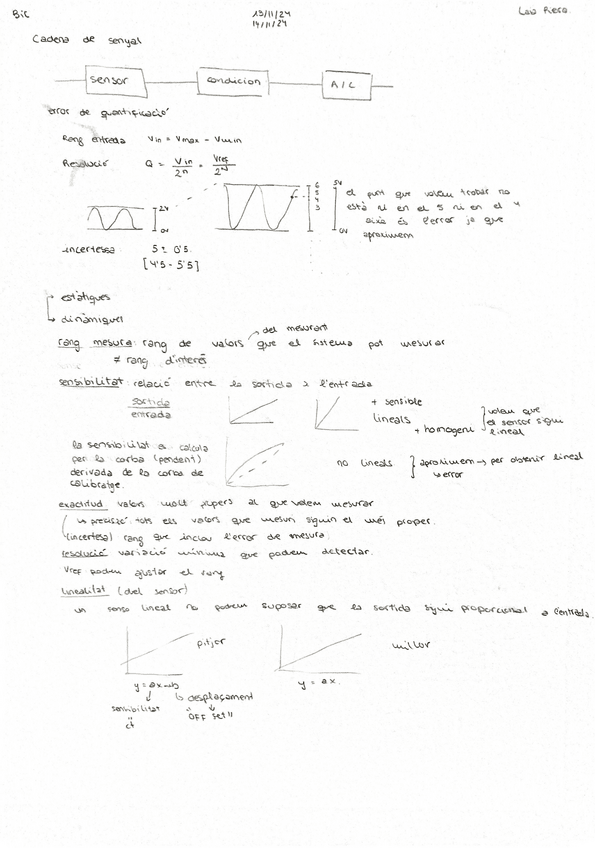 Bic
13/11/24
14/11/24
Laia Riera.
Cadena de senyal
sensor
condicion
A/C
error de quantificació
Rang entrada Vin = Vmax - Vmin
Resolució Q = Vin / 2^n = Vref / 2^n
2V
0V
6
5
4
3
5V
0V
el punt que volem trobar no
està ni en el 5 ni en el 4
això és l'error ja que
aproximem
incertessa 5 ± 0'5
[4'5 - 5'5]
estàtiques
dinàmiques
del mesurant
rang mesura: rang de valors que el sistema pot mesurar
≠ rang d'interès
sensibilitat: relació entre la sortida i l'entrada
sortida
entrada
+ sensible
lineals
+ homogeni
volem que
el sensor sigui
lineal
la sensibilitat es calcula
per la corba (pendent)
derivada de la corba de
calibratge.
no lineals
aproximem → per obtenir lineal
↳ error
exactitud valors molt propers al que volem mesurar
↳ precisió: tots els valors que mesuri siguin el més proper.
(incertesa) rang que inclou l'error de mesura.
resolució variació mínima que podem detectar.
Vref podem ajustar el rang
linealitat (del sensor)
un senso lineal no podem suposar que la sortida sigui proporcional a l'entrada.
pitjor
millor
y = ax + b
y = ax.
↳ desplaçament
sensibilitat
"OFF set"
ct